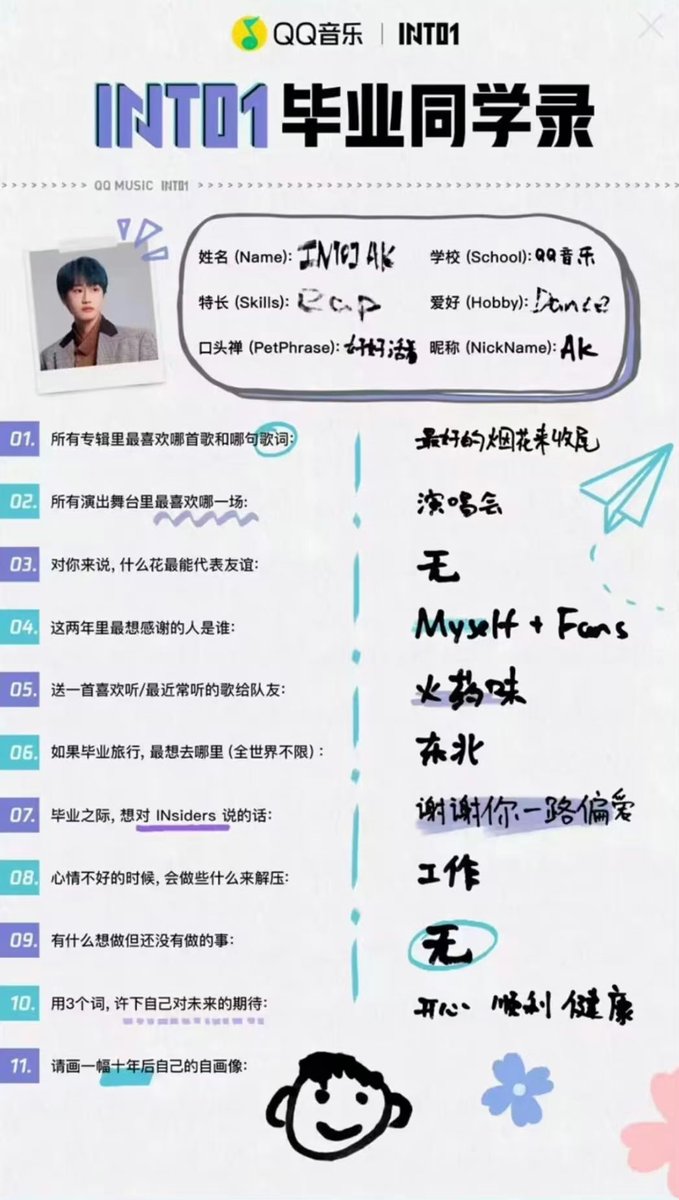 QQ音乐 | INTO1
INTO1 毕业同学录
QQ MUSIC INTO1
姓名 (Name): INTO1 AK 学校 (School): QQ音乐
特长 (Skills): Rap 爱好 (Hobby): Dance
口头禅 (PetPhrase): 好好活着 昵称 (NickName): AK
01. 所有专辑里最喜欢哪首歌和哪句歌词: 最好的烟花来收尾
02. 所有演出舞台里最喜欢哪一场: 演唱会
03. 对你来说, 什么花最能代表友谊: 无
04. 这两年里最想感谢的人是谁: Myself + Fans
05. 送一首喜欢听/最近常听的歌给队友: 火药味
06. 如果毕业旅行, 最想去哪里 (全世界不限) : 东北
07. 毕业之际, 想对 INsiders 说的话: 谢谢你一路偏爱
08. 心情不好的时候, 会做些什么来解压: 工作
09. 有什么想做但还没有做的事: 无
10. 用3个词, 许下自己对未来的期待: 开心 顺利 健康
11. 请画一幅十年后自己的自画像: